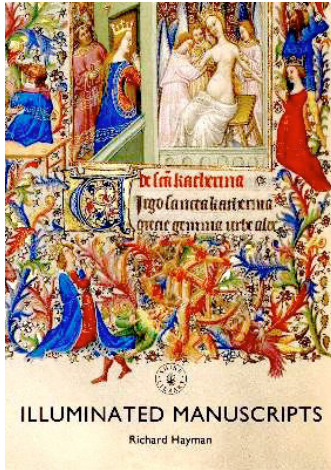 De sc̄a katherina
Virgo sancta katerina
grecie gemma urbe alex
SHIRE LIBRARY
ILLUMINATED MANUSCRIPTS
Richard Hayman